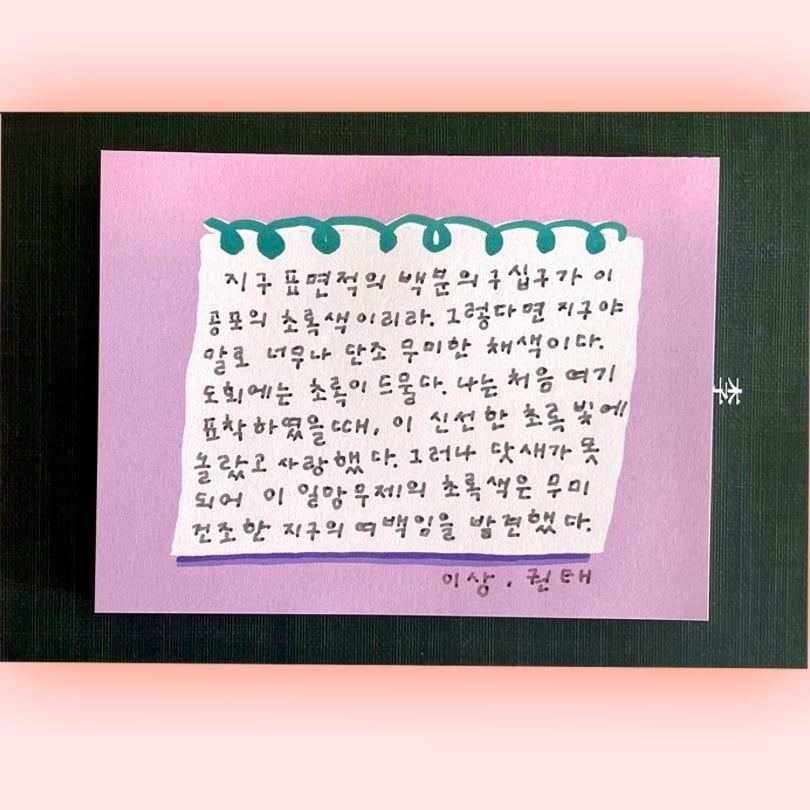 지구 표면적의 백분의 구십구가 이
공포의 초록색이리라. 그렇다면 지구야
말로 너무나 단조 무미한 채색이다.
도회에는 초록이 드물다. 나는 처음 여기
표착하였을 때, 이 신선한 초록빛에
놀랐고 사랑했다. 그러나 닷새가 못
되어 이 일망무제의 초록색은 무미
건조한 지구의 여백임을 발견했다.
이상, 권태
李